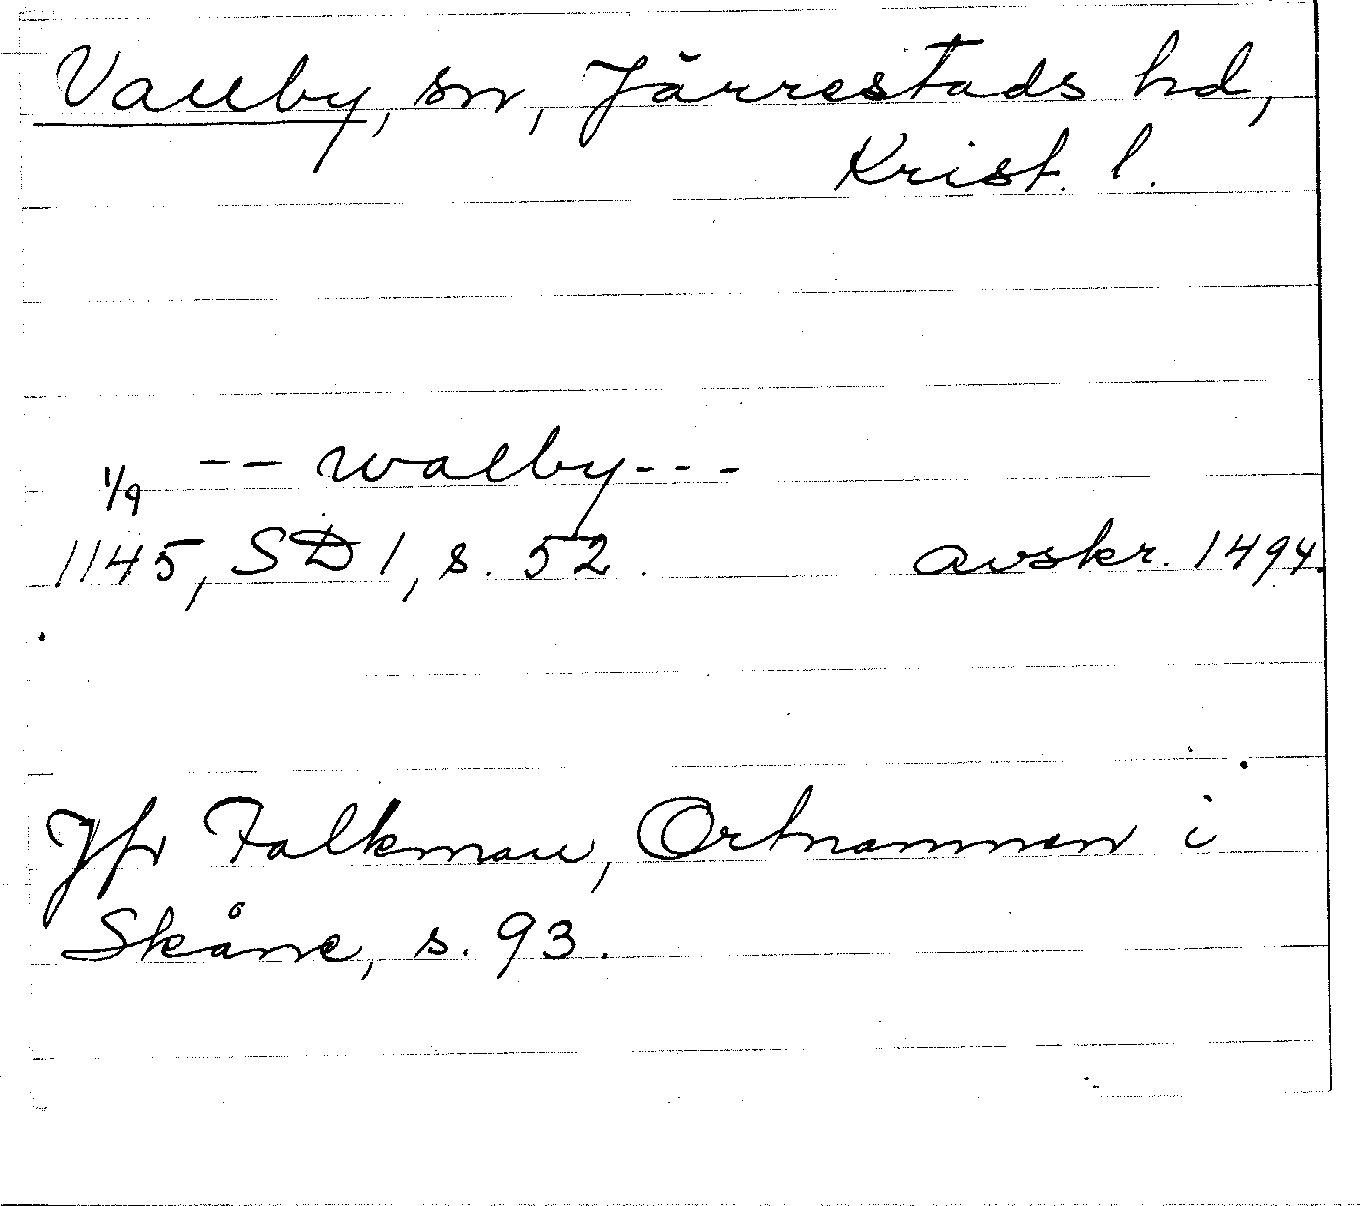 Vallby, sn, Järrestads hd,
Krist. l.
-- walby---
1/9
1145, SD 1, s. 52. avskr. 1494.
Jfr Falkman, Ortnamnen i
Skåne, s. 93.